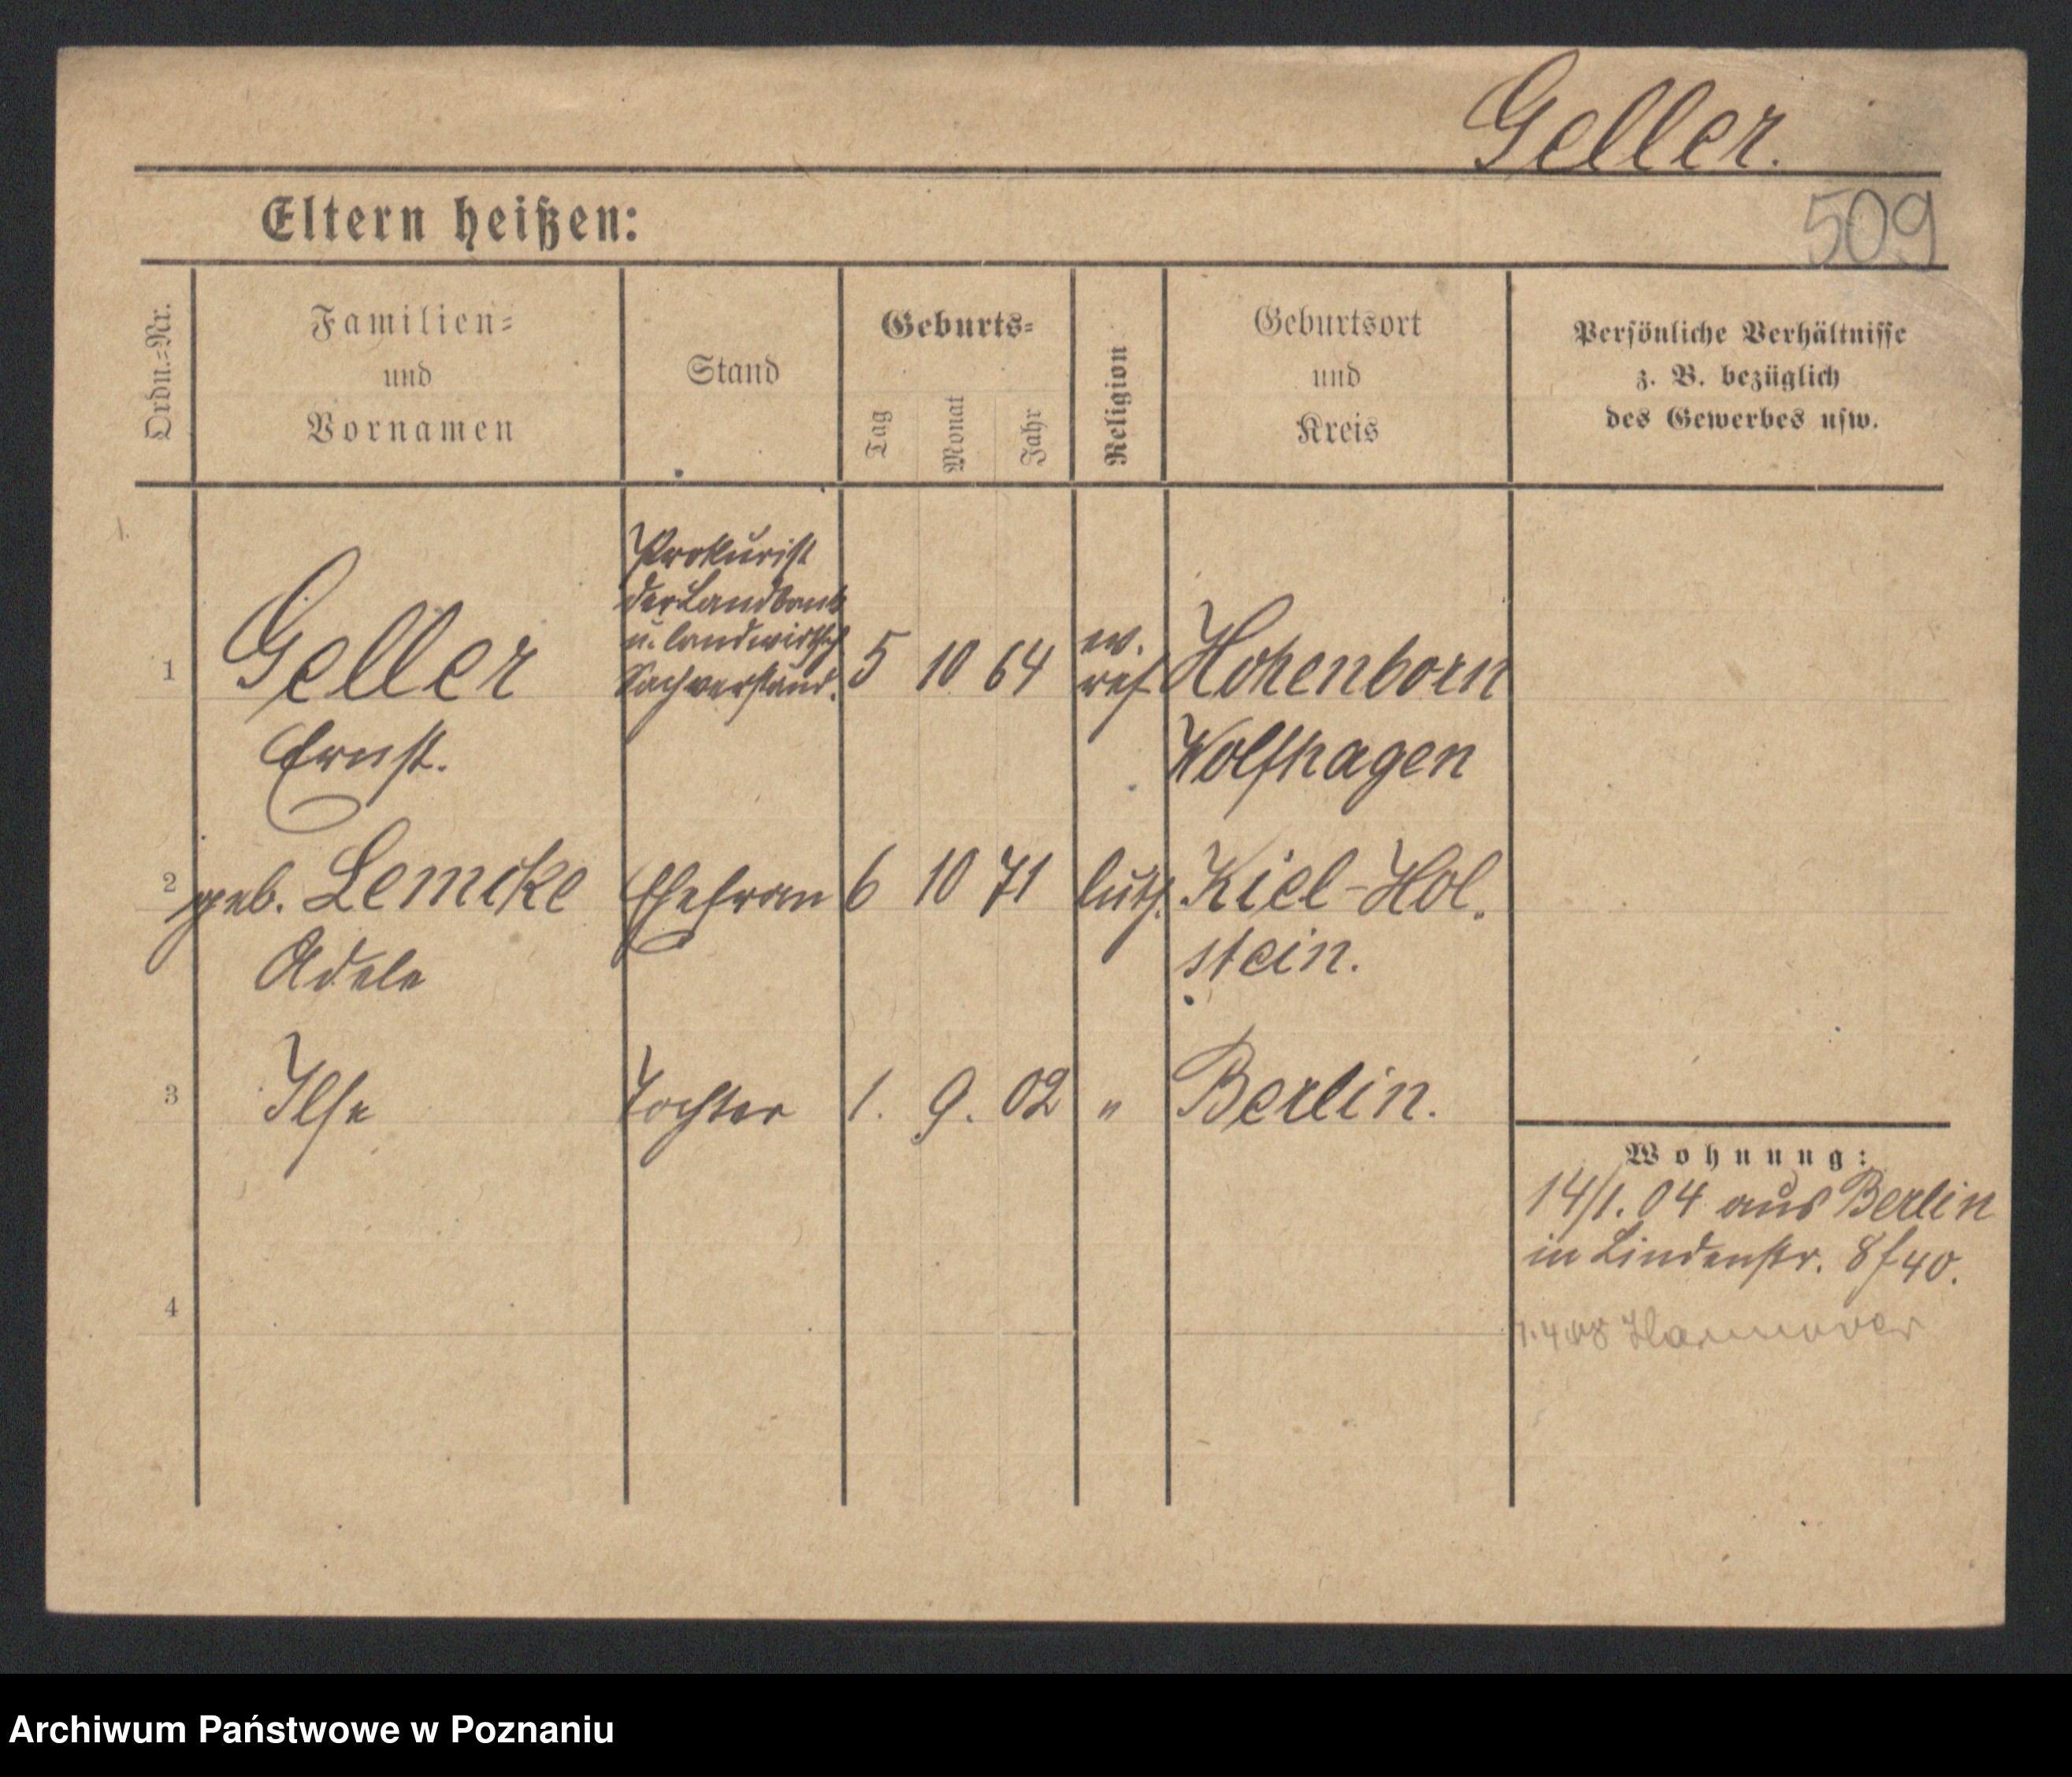 Geller.
Eltern heißen:
509
Ordn.=Nr.
Familien=
und
Vornamen
Stand
Geburts=
Tag
Monat
Jahr
Religion
Geburtsort
und
Kreis
Persönliche Verhältnisse
z. B. bezüglich
des Gewerbes usw.
Prokurist
der Landbank
u. landwirthsch
Sachverständ.
1 Geller 5 10 64 ev. ref. Hohenborn
Ernst. Wolfhagen
2 geb. Lemcke Ehefrau 6 10 71 luth. Kiel-Hol.
Adele stein.
3 Ilse Tochter 1. 9. 02 " Berlin.
4
Wohnung:
14/1. 04 aus Berlin
in Lindenstr. 8 f 40.
1.4.08 Hannover
Archiwum Państwowe w Poznaniu